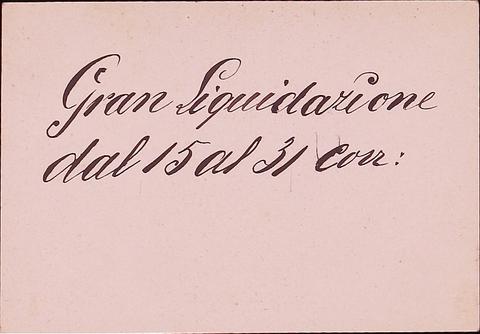 Gran Liquidazione
dal 15 al 31 Corr: